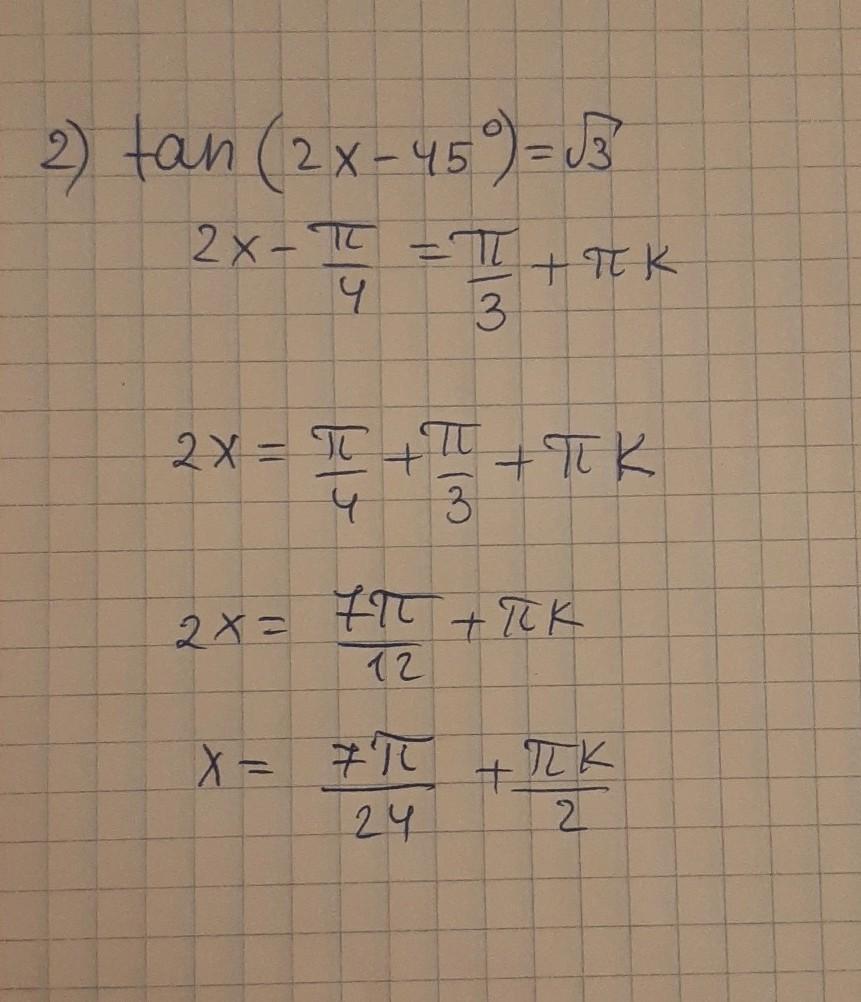 2) tan(2x-45°)=√3
2x - π/4 = π/3 + πk
2x = π/4 + π/3 + πk
2x = 7π/12 + πk
x = 7π/24 + πk/2